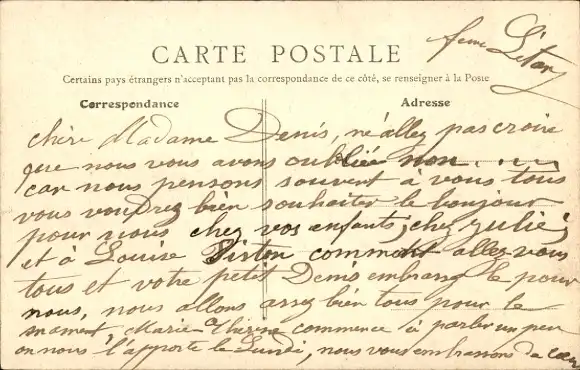 CARTE POSTALE
Certains pays étrangers n'acceptant pas la correspondance de ce côté, se renseigner à la Poste
Correspondance
Adresse
chère Madame Denis, n'allez pas croire
que nous vous avons oubliée non
car nous pensons souvent à vous tous
vous voudrez bien souhaiter le bonjour
pour nous chez vos enfants, chez Julie,
et à Louise comment allez vous
tous et votre petit Denis embrassez le pour
nous, nous allons assez bien tous pour le
moment, Marie commence à parler un peu
on nous l'apporte le Lundi, nous vous embrassons de cœur